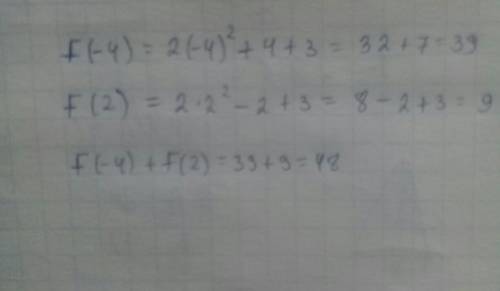 f(-4) = 2(-4)² + 4 + 3 = 32 + 7 = 39
f(2) = 2·2² - 2 + 3 = 8 - 2 + 3 = 9
f(-4) + f(2) = 39 + 9 = 48